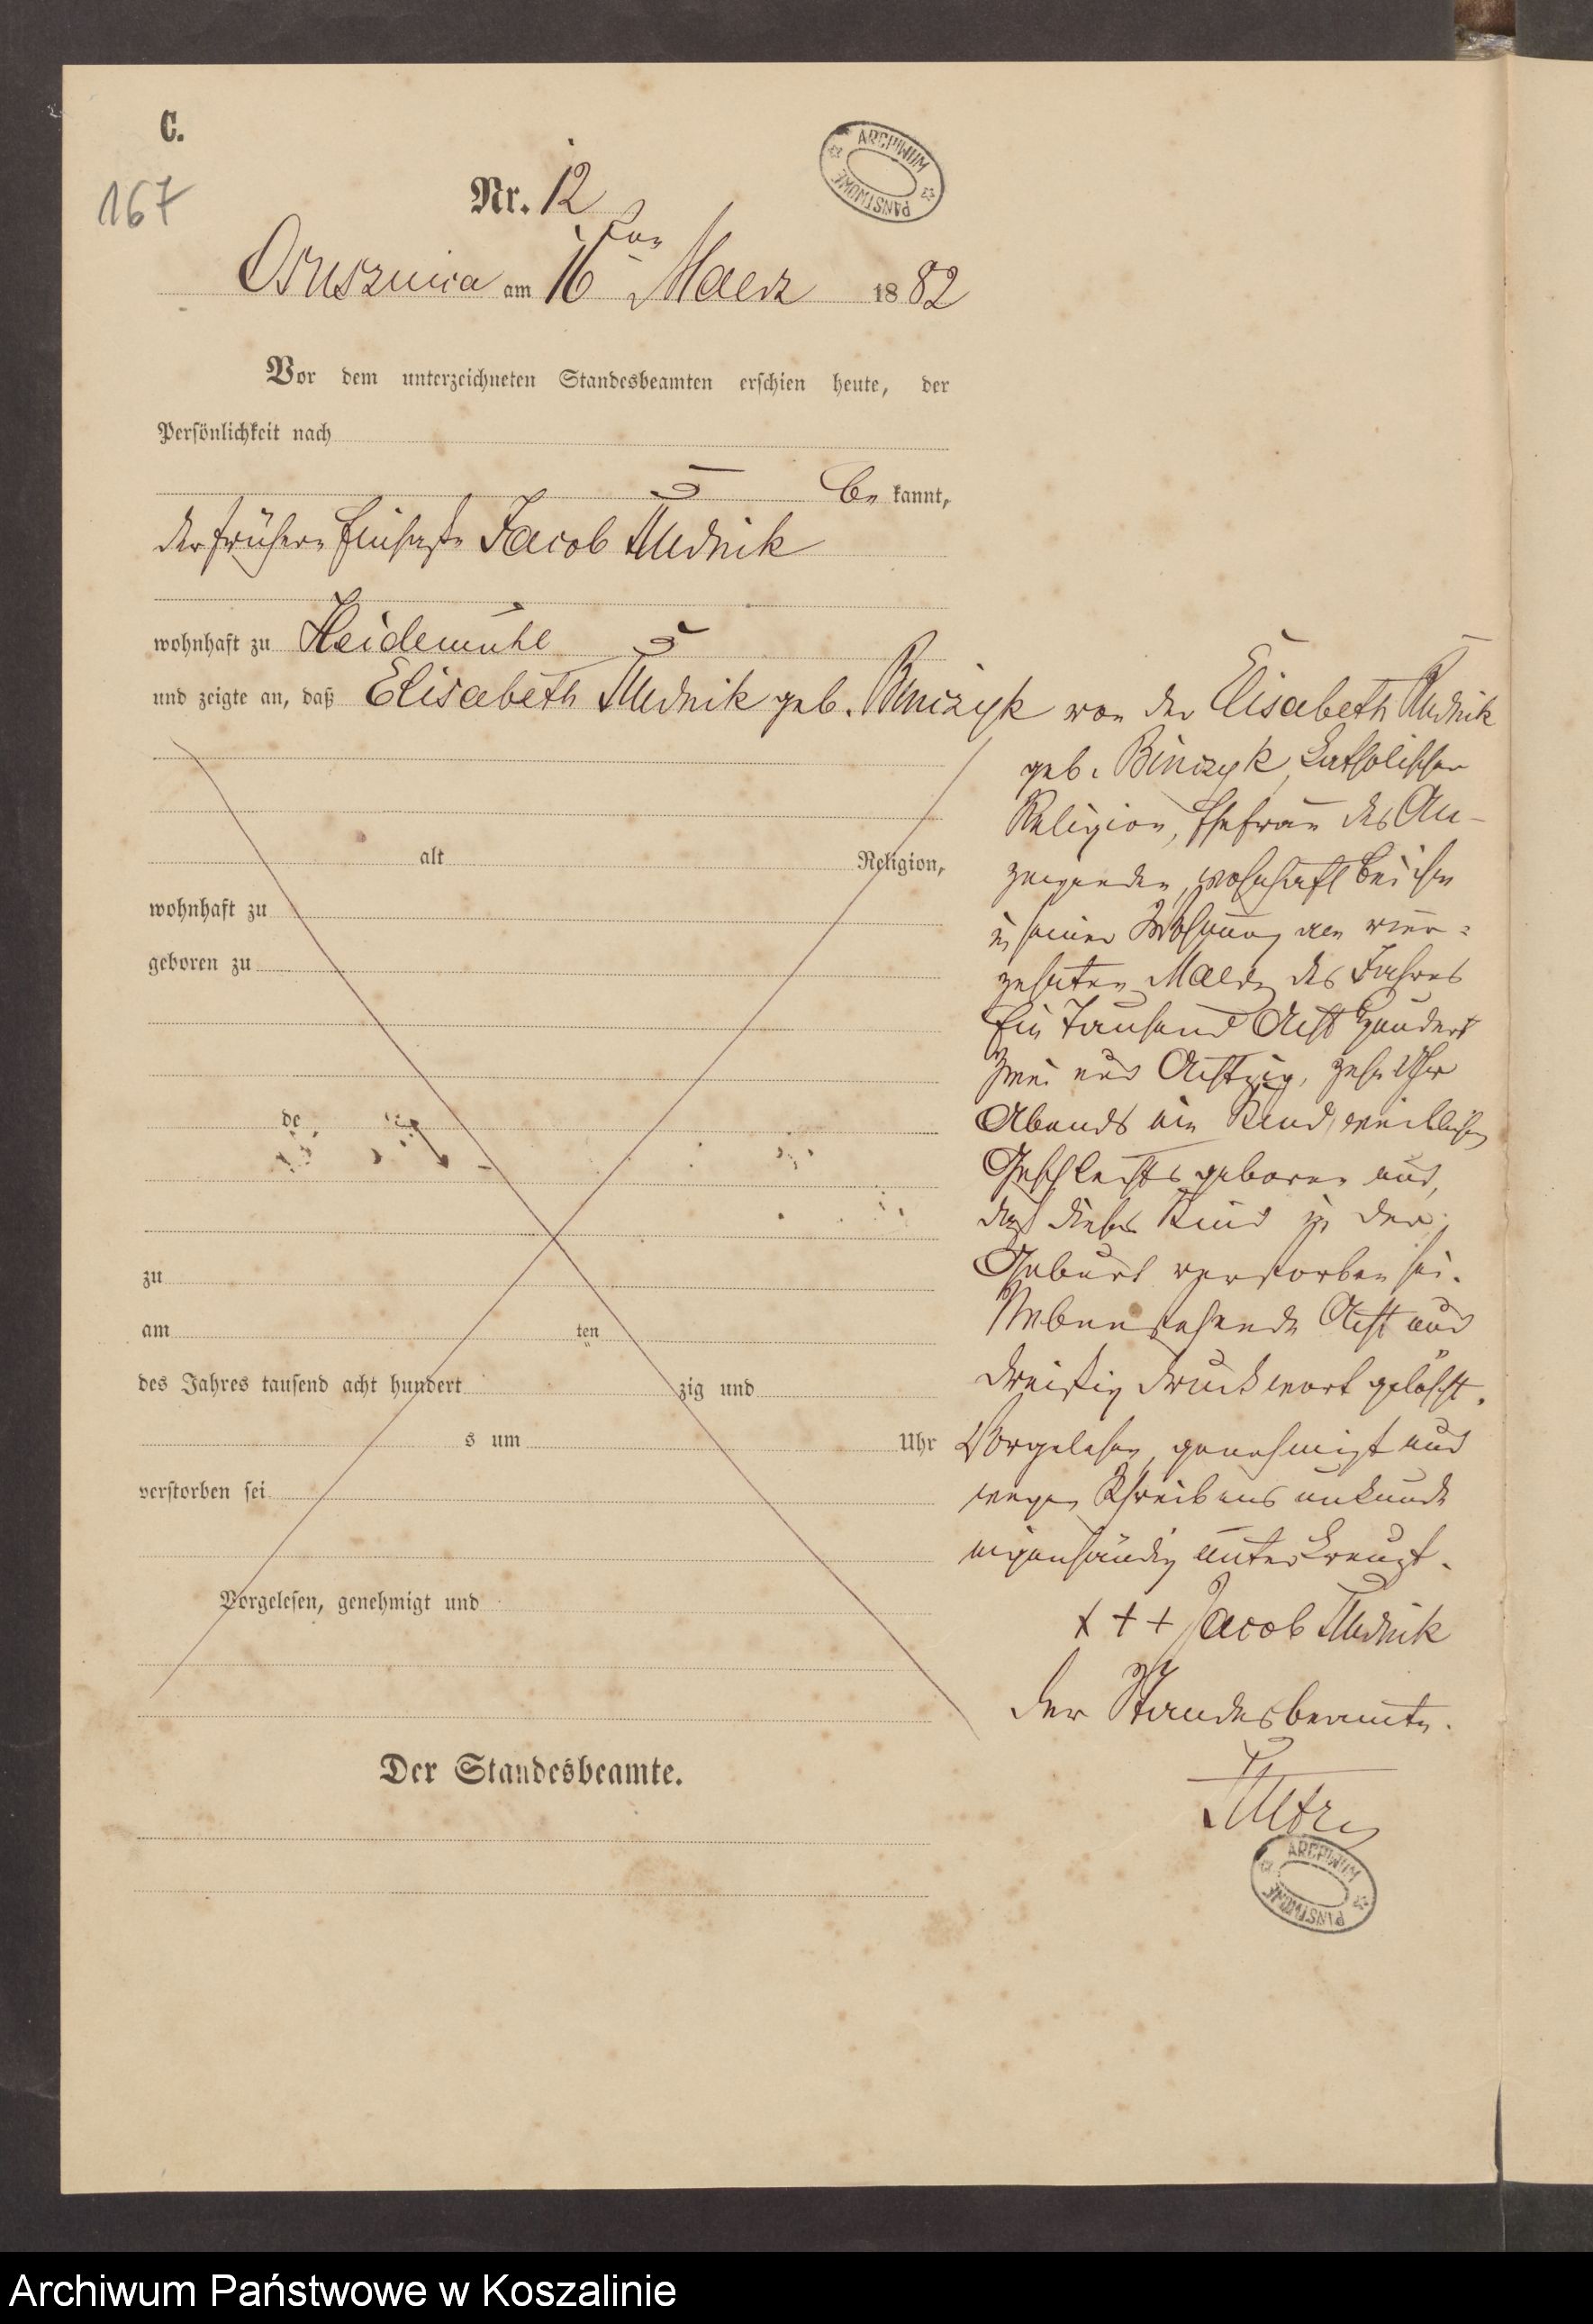 C.
167
ARCHIWUM PAŃSTWOWE
Nr. 12
Osusznica am 16ten Maerz 1882
Vor dem unterzeichneten Standesbeamten erschien heute, der
Persönlichkeit nach
be kannt,
der frühere Einsasse Jacob Rudnik
wohnhaft zu Heidemühl
und zeigte an, daß Elisabeth Rudnik geb. Binczyk von der Elisabeth Rudnik
geb. Binczyk, katholischer
Religion, Ehefrau des An-
zeigenden, wohnhaft bei ihm
in seiner Wohnung am vier-
zehnten Maerz des Jahres
Ein Tausend Acht Hundert
Zwei und Achtzig, zehn Uhr
Abends ein Kind weiblichen
Geschlechts geboren und,
daß dieses Kind in der
Geburt verstorben sei.
Nebenstehende Acht und
dreißig Druckwort gelöscht.
Vorgelesen, genehmigt und
wegen Schreibens unkunde
eigenhändig unterkreuzt.
+ + + Jacob Rudnik
Der Standesbeamte.
alt Religion,
wohnhaft zu
geboren zu
de
zu
am ten
des Jahres tausend acht hundert zig und
s um Uhr
verstorben sei
Vorgelesen, genehmigt und
Der Standesbeamte.
ARCHIWUM PAŃSTWOWE
Archiwum Państwowe w Koszalinie